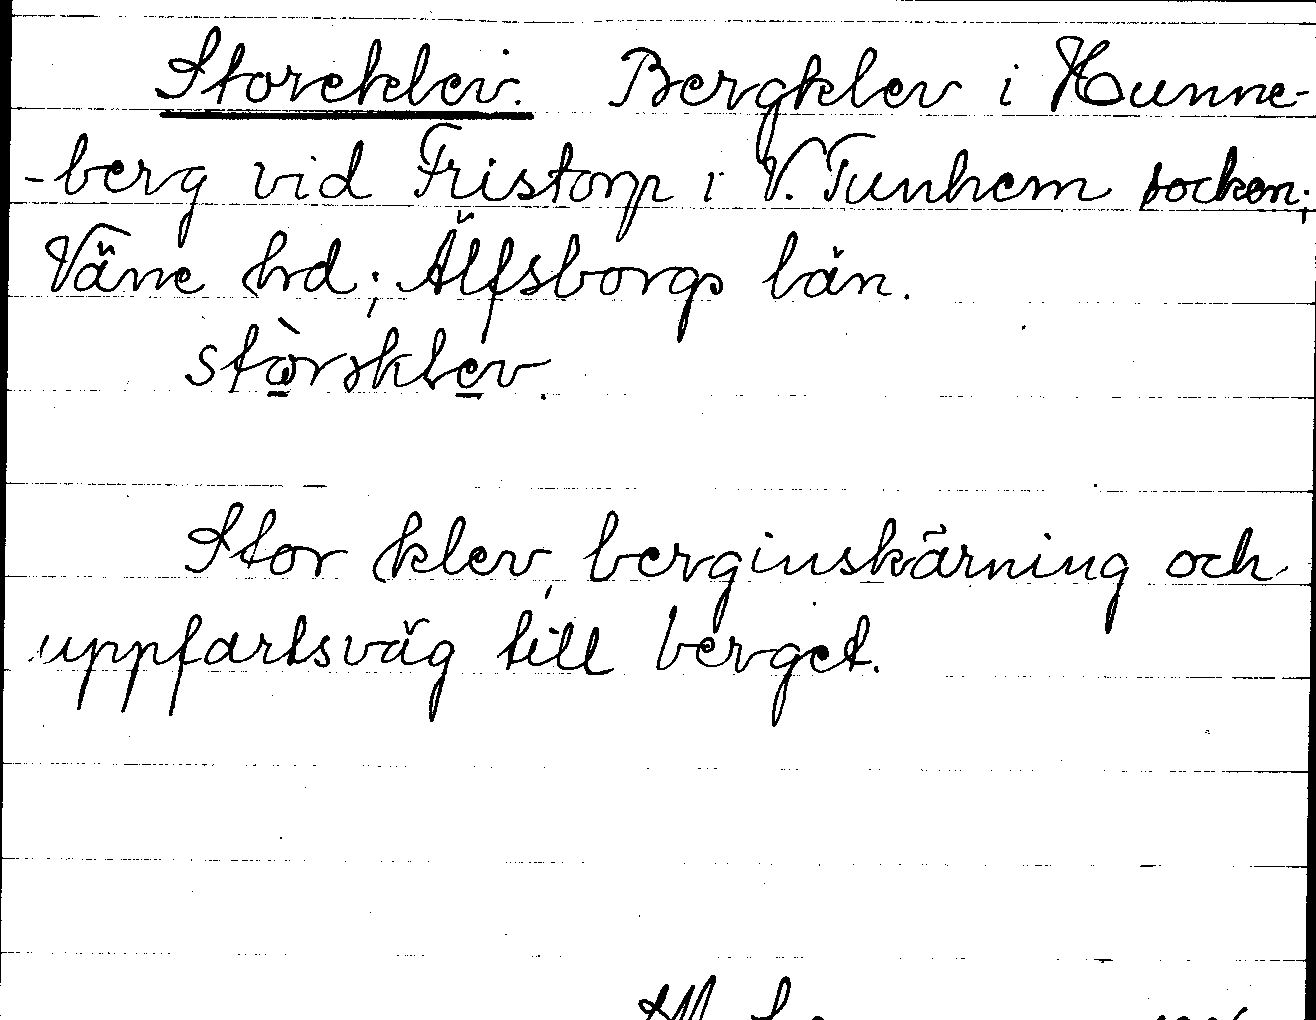 Storeklev. Bergklev i Hunne-
-berg vid Fristorp i V. Tunhem socken;
Väne hrd; Älfsborgs län.
stòrsklev.
Stor klev, berginskärning och
uppfartsväg till berget.